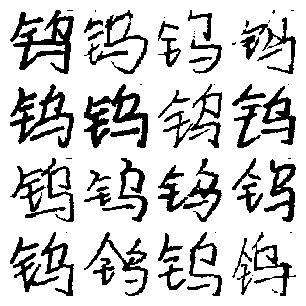 钨钨钨钨
钨钨钨钨
钨钨钨钨
钨钨钨钨